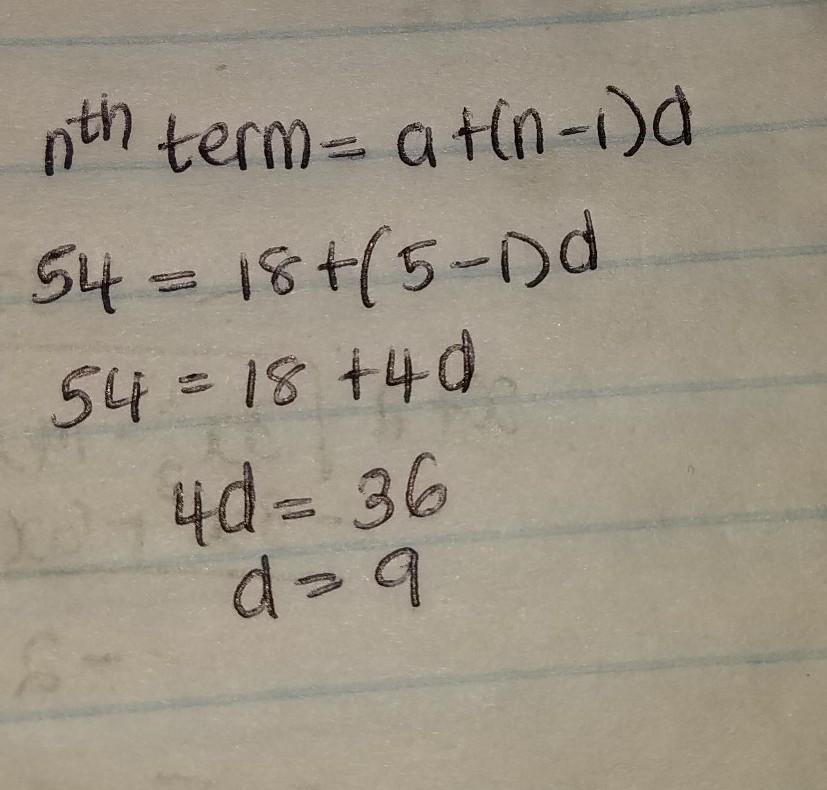 nth term = a+(n-1)d
54 = 18+(5-1)d
54 = 18 +4d
4d = 36
d = 9